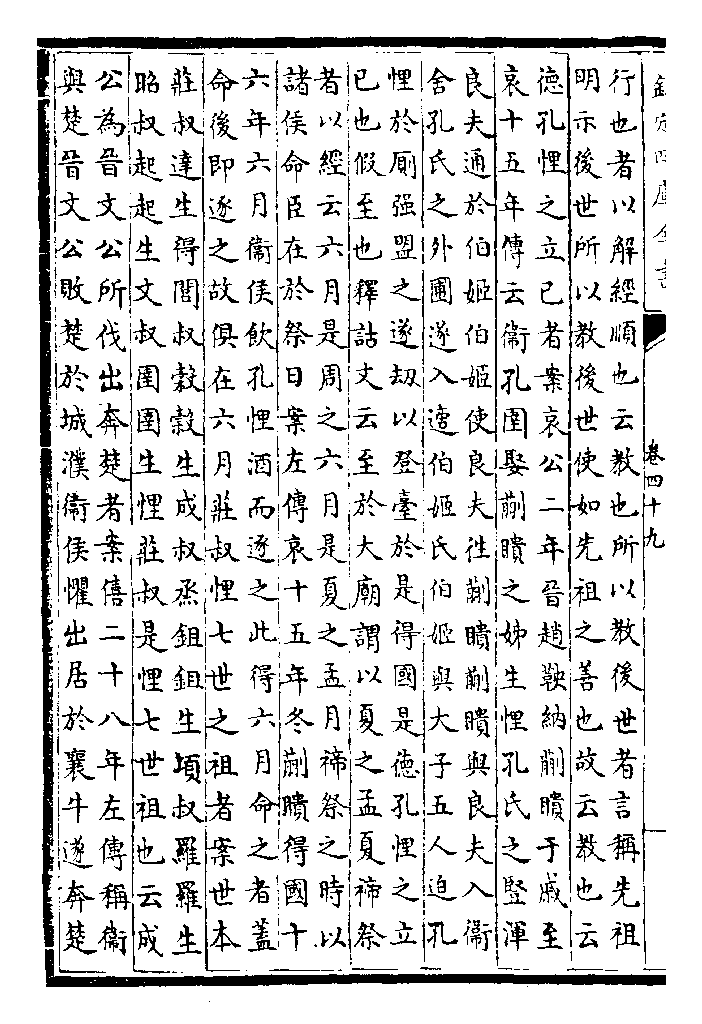 欽定四庫全書
卷四十九
行也者以解經順也云教也所以教後世者言稱先祖
明示後世所以教後世使如先祖之善也故云教也云
德孔悝之立已者案哀公二年晉趙鞅納蒯聵于戚至
哀十五年傳云衞孔圉娶蒯聵之姊生悝孔氏之豎渾
良夫通於伯姬伯姬使良夫徃蒯聵蒯聵與良夫入衞
舍孔氏之外圃遂入適伯姬氏伯姬與大子五人迫孔
悝於厠强盟之遂刼以登臺於是得國是德孔悝之立
已也假至也釋詁文云至於大廟謂以夏之孟夏禘祭
者以經云六月是周之六月是夏之孟月禘祭之時以
諸侯命臣在於祭日案左傳哀十五年冬蒯聵得國十
六年六月衞侯飲孔悝酒而逐之此得六月命之者蓋
命後即逐之故俱在六月莊叔悝七世之祖者案世本
莊叔達生得閭叔穀穀生成叔烝鉏鉏生頃叔羅羅生
昭叔起起生文叔圉圉生悝莊叔是悝七世祖也云成
公為晉文公所伐出奔楚者案僖二十八年左傳稱衞
與楚晉文公敗楚於城濮衞侯懼出居於襄牛遂奔楚